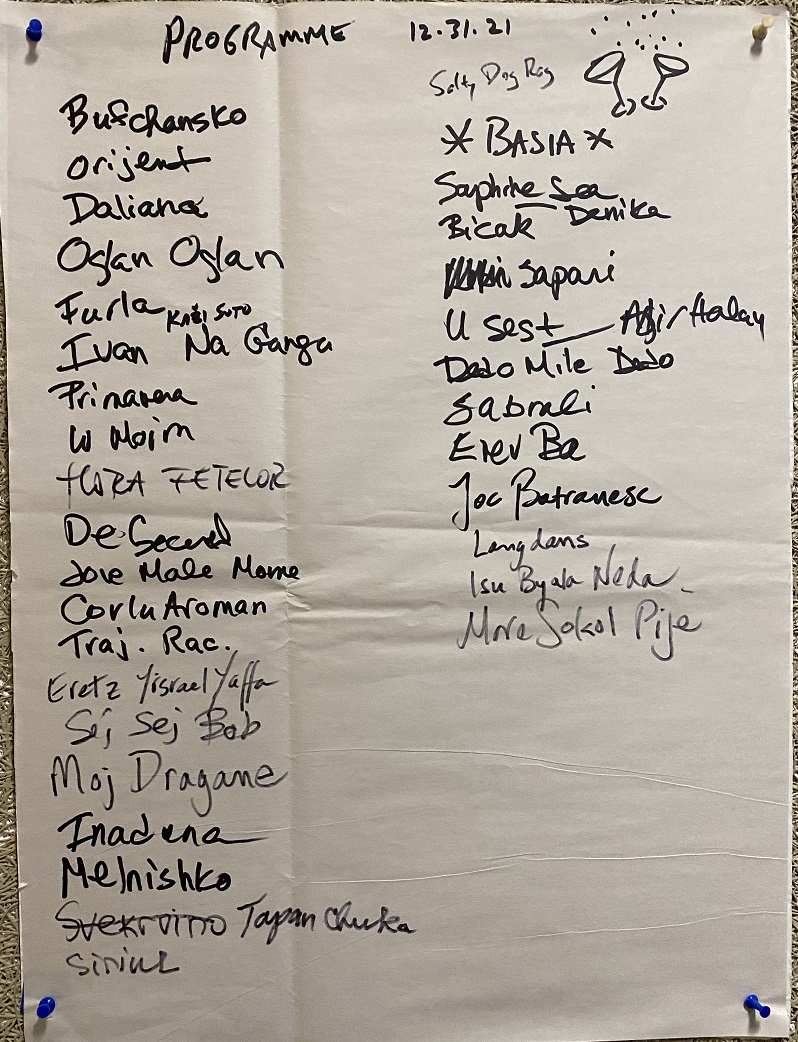 PROGRAMME 12.31.21
Bufchansko
Orijent
Daliana
Oglan Oglan
Furla KAži SuTO
Ivan Na Ganga
Primavera
W Moim
HORA FETELOR
De Secerel
Jove Male Mome
Corlu Aroman
Traj. Rac.
Eretz Yisrael Yaffa
Sej Sej Bob
Moj Dragane
Inadena
Melnishko
Svekrvino Tapan Chuka
Sirius
Salty Dog Rag
* BASIA *
Saphire Sea
Bicak Denika
Sapari
U Sest Agir Halay
Dedo Mile Dedo
Sabrali
Erev Ba
Joc Batranesc
Langdans
Isu Byala Neda
More Sokol Pije